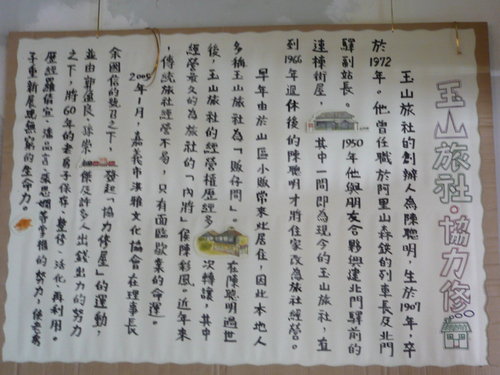 玉山旅社·協力修
玉山旅社的創辦人為陳聰明，生於1907年，卒
於1972年。他曾任職於阿里山森鉄的列車長及北門
驛副站長。1950年他與朋友合夥興建北門驛前的
連棟街屋，其中一間即為現今的玉山旅社，直
到1966年退休後的陳聰明才將住家改為旅社經營。
早年由於山區小販常來此居住，因此本地人
多稱玉山旅社為「販仔間」。在陳聰明過世
後，玉山旅社的經營權歷經多次轉讓，其中
經營最久的為旅社的「內將」侯陳彩鳳。近年來
，傳統旅社經營不易，只有面臨歇業的命運。
2009年1月，嘉義市洪雅文化協會在理事長
余國信的號召之下，發起「協力修屋」的運動，
並由郭盈良、徐榮 傑及許多人出錢出力的努力
之下，將60年的老房子保存、整修、活化、再利用。
歷經羅 信、潘品言、 等掌櫃的努力，使老房
子重新展現無窮的生命力。